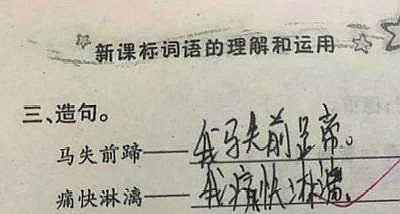 新课标词语的理解和运用
三、造句。
马失前蹄——我马失前足帝。
痛快淋漓——我痛快淋漓。